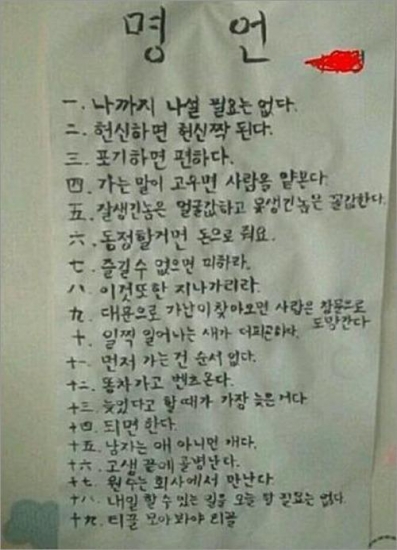 명 언
一. 나까지 나설 필요는 없다.
二. 헌신하면 헌신짝 된다.
三. 포기하면 편하다.
四. 가는 말이 고우면 사람을 얕본다.
五. 잘생긴놈은 얼굴값하고 못생긴놈은 꼴값한다.
六. 동정할거면 돈으로 줘요.
七. 즐길수 없으면 피하라.
八. 이것또한 지나가리라.
九. 대문으로 가난이 찾아오면 사람은 창문으로
도망간다
十. 일찍 일어나는 새가 더피곤하다.
十一. 먼저 가는건 순서 없다.
十二. 똥차가고 벤츠온다.
十三. 늦었다고 할 때가 가장 늦은거다.
十四. 되면 한다.
十五. 남자는 애 아니면 개다.
十六. 고생 끝에 골병난다.
十七 원수는 회사에서 만난다.
十八. 내일 할 수 있는 일을 오늘 할 필요는 없다.
十九. 티끌 모아봐야 티끌